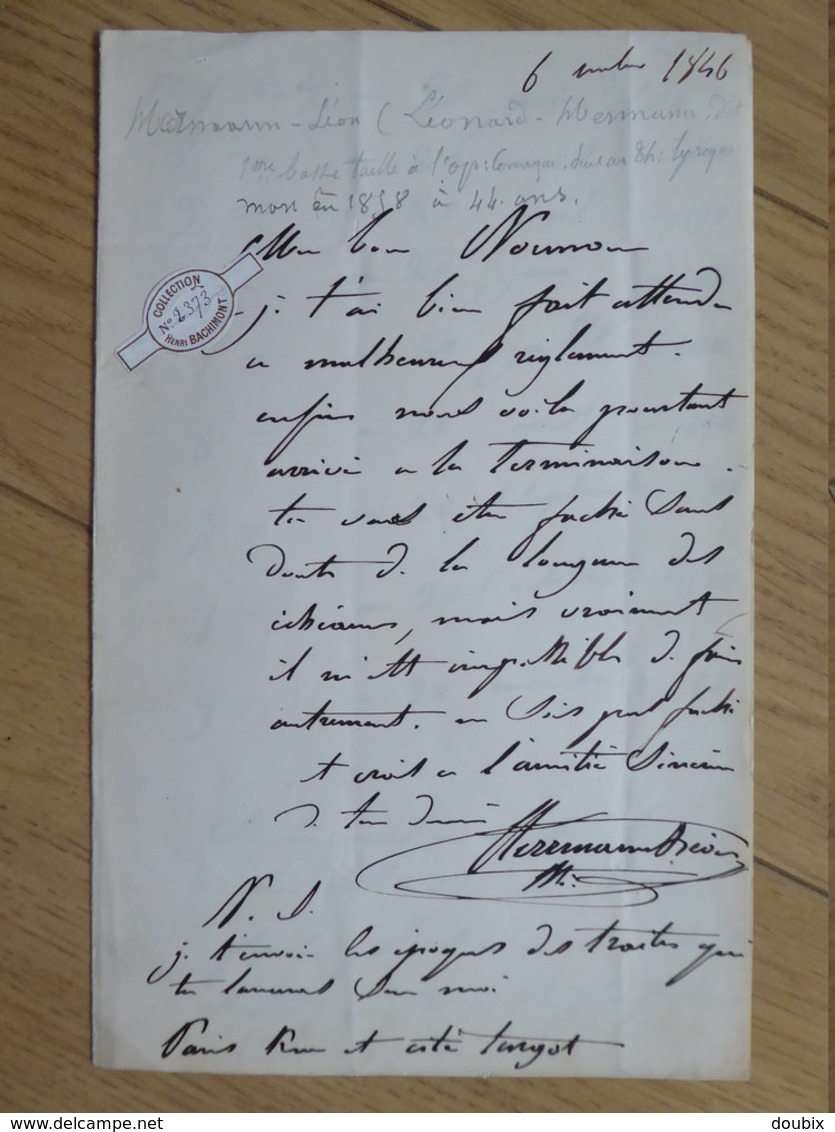 6 1846
Hermann-Léon (Léonard-Hermann, dit
1ère basse taille à l'op: Comique: au th: lyrique
mort en 1858 à 44 ans.
Mon bon
COLLECTION
No. 2373
HENRI BACHIMONT
je t'ai bien fait attendre
ce malheureux règlement.
enfin nous voilà pourtant
arrivé a la terminaison.
tu vas être faché sans
doute de la longueur des
échéances, mais vraiment
il m'est impossible de faire
autrement. ne sois pas faché
et crois a l'amitié sincère
de ton ami
Hermann Léon
P. S.
je t'envoie les époques des traites que
tu sur moi
Paris Rue et cité turgot
delcampe.net
doubix